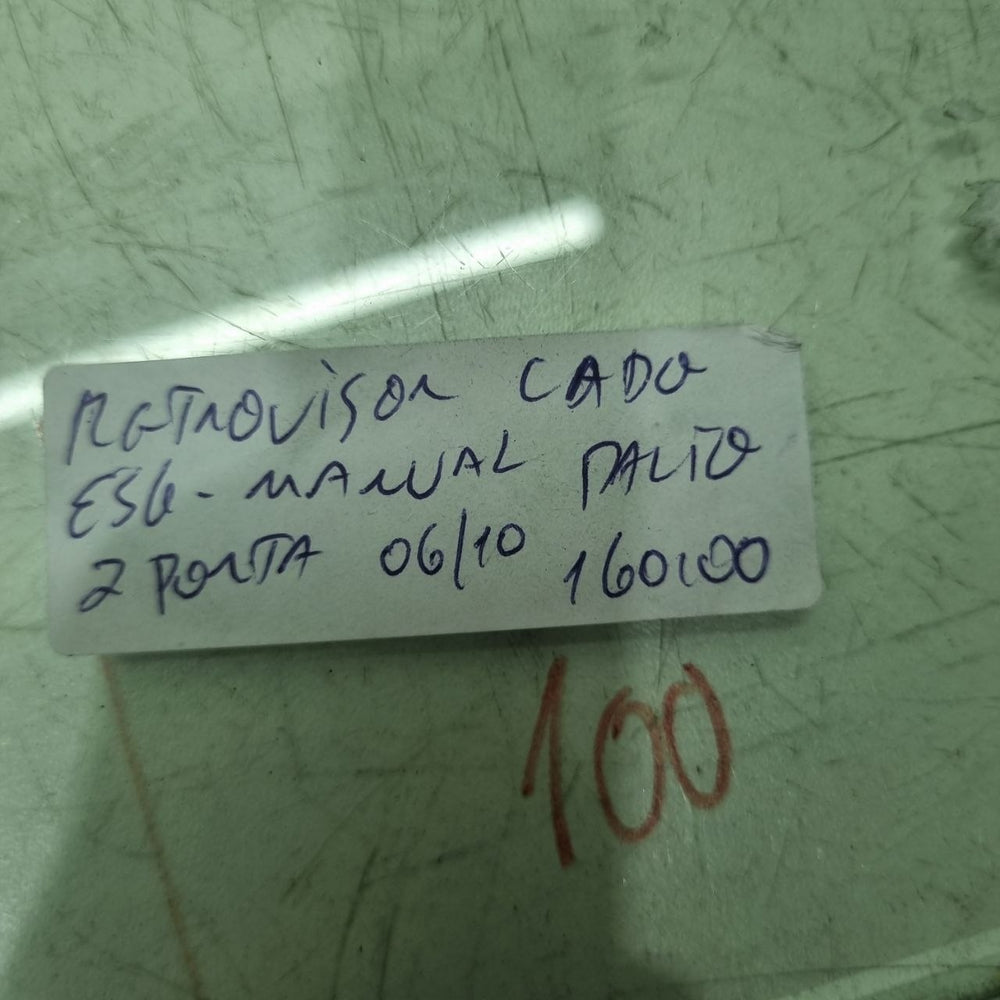 RETROVISOR CADO
ESG - MANUAL PALIO
2 PORTA 06/10 160,00
100